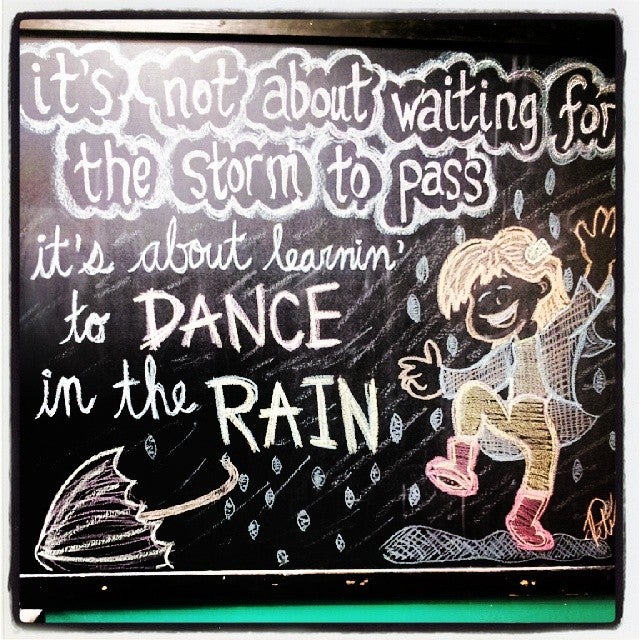 it's not about waiting for
the storm to pass
it's about learnin'
to DANCE
in the RAIN